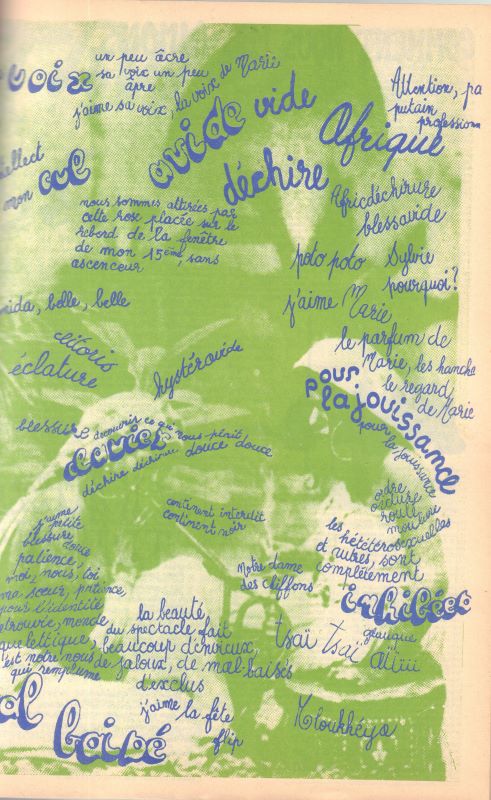 un peu âcre
sa voix un peu
âpre
voix
j'aime sa voix, la voix de Marie
avide vide
déchire
Attention, pa
putain
profession
Afrique
Africdéchirure
blessavide
tellect
mon cul
nous sommes attirées par
cette rose placée sur le
rebord de la fenêtre
de mon 15ème, sans
ascenceur
poto poto
Sylvie
pourquoi?
j'aime Marie
le parfum de
Marie, les hanche
le regard
de Marie
belle, belle
clitoris
éclature
hystéravide
pour
la jouissance
pour la jouissance
blessure
découvrir ce qui nous plaît
déchire
douce douce
continent interdit
continent noir
ordre
roule
les hététerosexuelles
et autres, sont
complètement
inhibées
j'aime
petite
blessure
douce
patience,
moi, nous, toi
ma sœur, patience,
pour l'identité
retrouvée, monde
que lettrique,
est notre nous
qui remplume
Notre dame
des chiffons
la beauté,
du spectacle fait
beaucoup d'envieux,
de jaloux, de mal-baisés
d'exclus
j'aime la fête
flip
tsaï tsaï aïïïï
glauque
al baisé
Mloukhéya